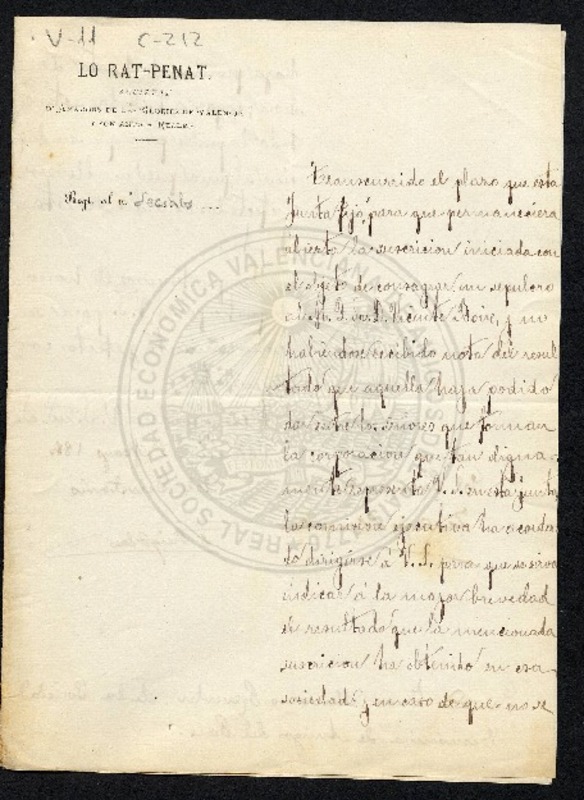 V-11 C-212
LO RAT-PENAT.
D'AMADORS DE LES GLORIES DE VALENCIA
Y SON ANTICH REALME
Regt. al nº
Transcurrido el plazo que esta
Junta fijó para que permaneciera
abierta la suscricion iniciada con
el objeto de consagrar un sepulcro
al D. Vicente Boix, y no
habiendose recibido nota del resul
tado que aquella haya podido
dar entre los Señores que forman
la corporacion que tan digna-
mente representa V. S. en esta junta
la comision ejecutiva ha acorda
do dirigirse á V. S. para que se sirva
indicar á la mayor brevedad
el resultado que la mencionada
suscricion ha obtenido en esa
sociedad y en caso de que no se
REAL SOCIEDAD ECONOMICA VALENCIANA